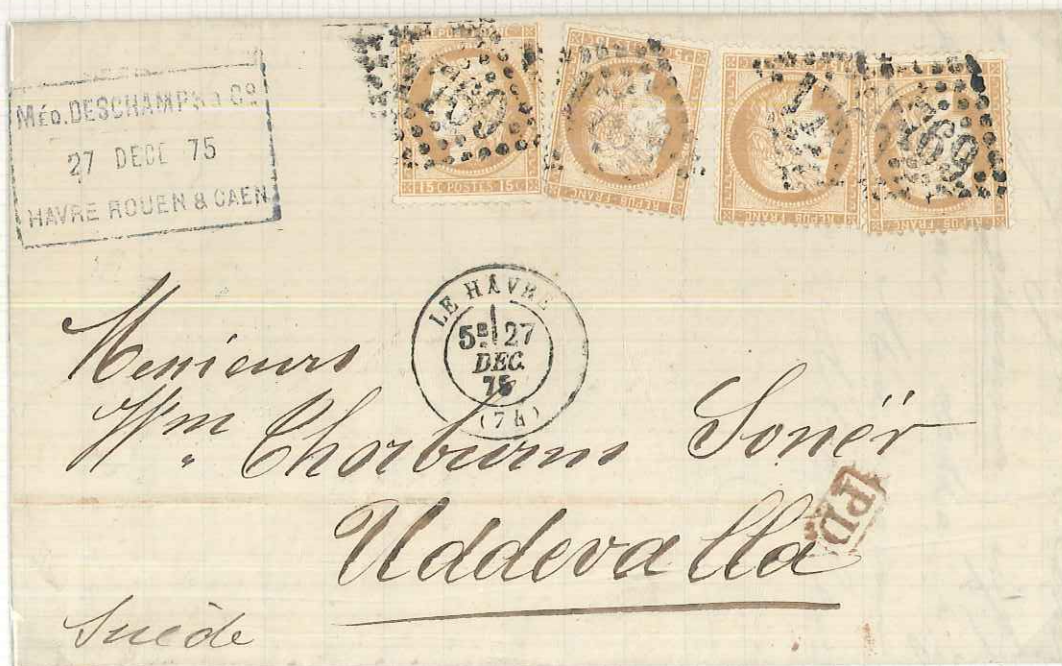 MÉD. DESCHAMPS & Cº
27 DECE 75
HAVRE ROUEN & CAEN
15 C. POSTES 15 C.
REPUB. FRANC.
REPUB. FRANC.
REPUB. FRANC.
769
LE HAVRE
5E 27
DEC.
75
(74)
Messieurs
Wm Thorburns Sonër
Uddevalla
PD
Suède